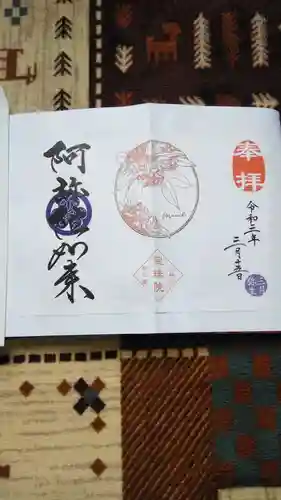 奉拝
令和三年
三月十五日
三月
弥生
宝珠院
阿弥陀如来